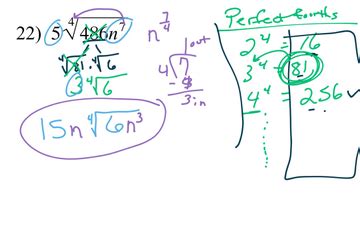 22) 5 ∜486n⁷
∜81 · ∜6
3 ∜6
15n ∜6n³
n^(7/4)
1 out
4 7
- 4
3 in
Perfect fourths
2⁴ = 16
3⁴ = 81
4⁴ = 256 ✓